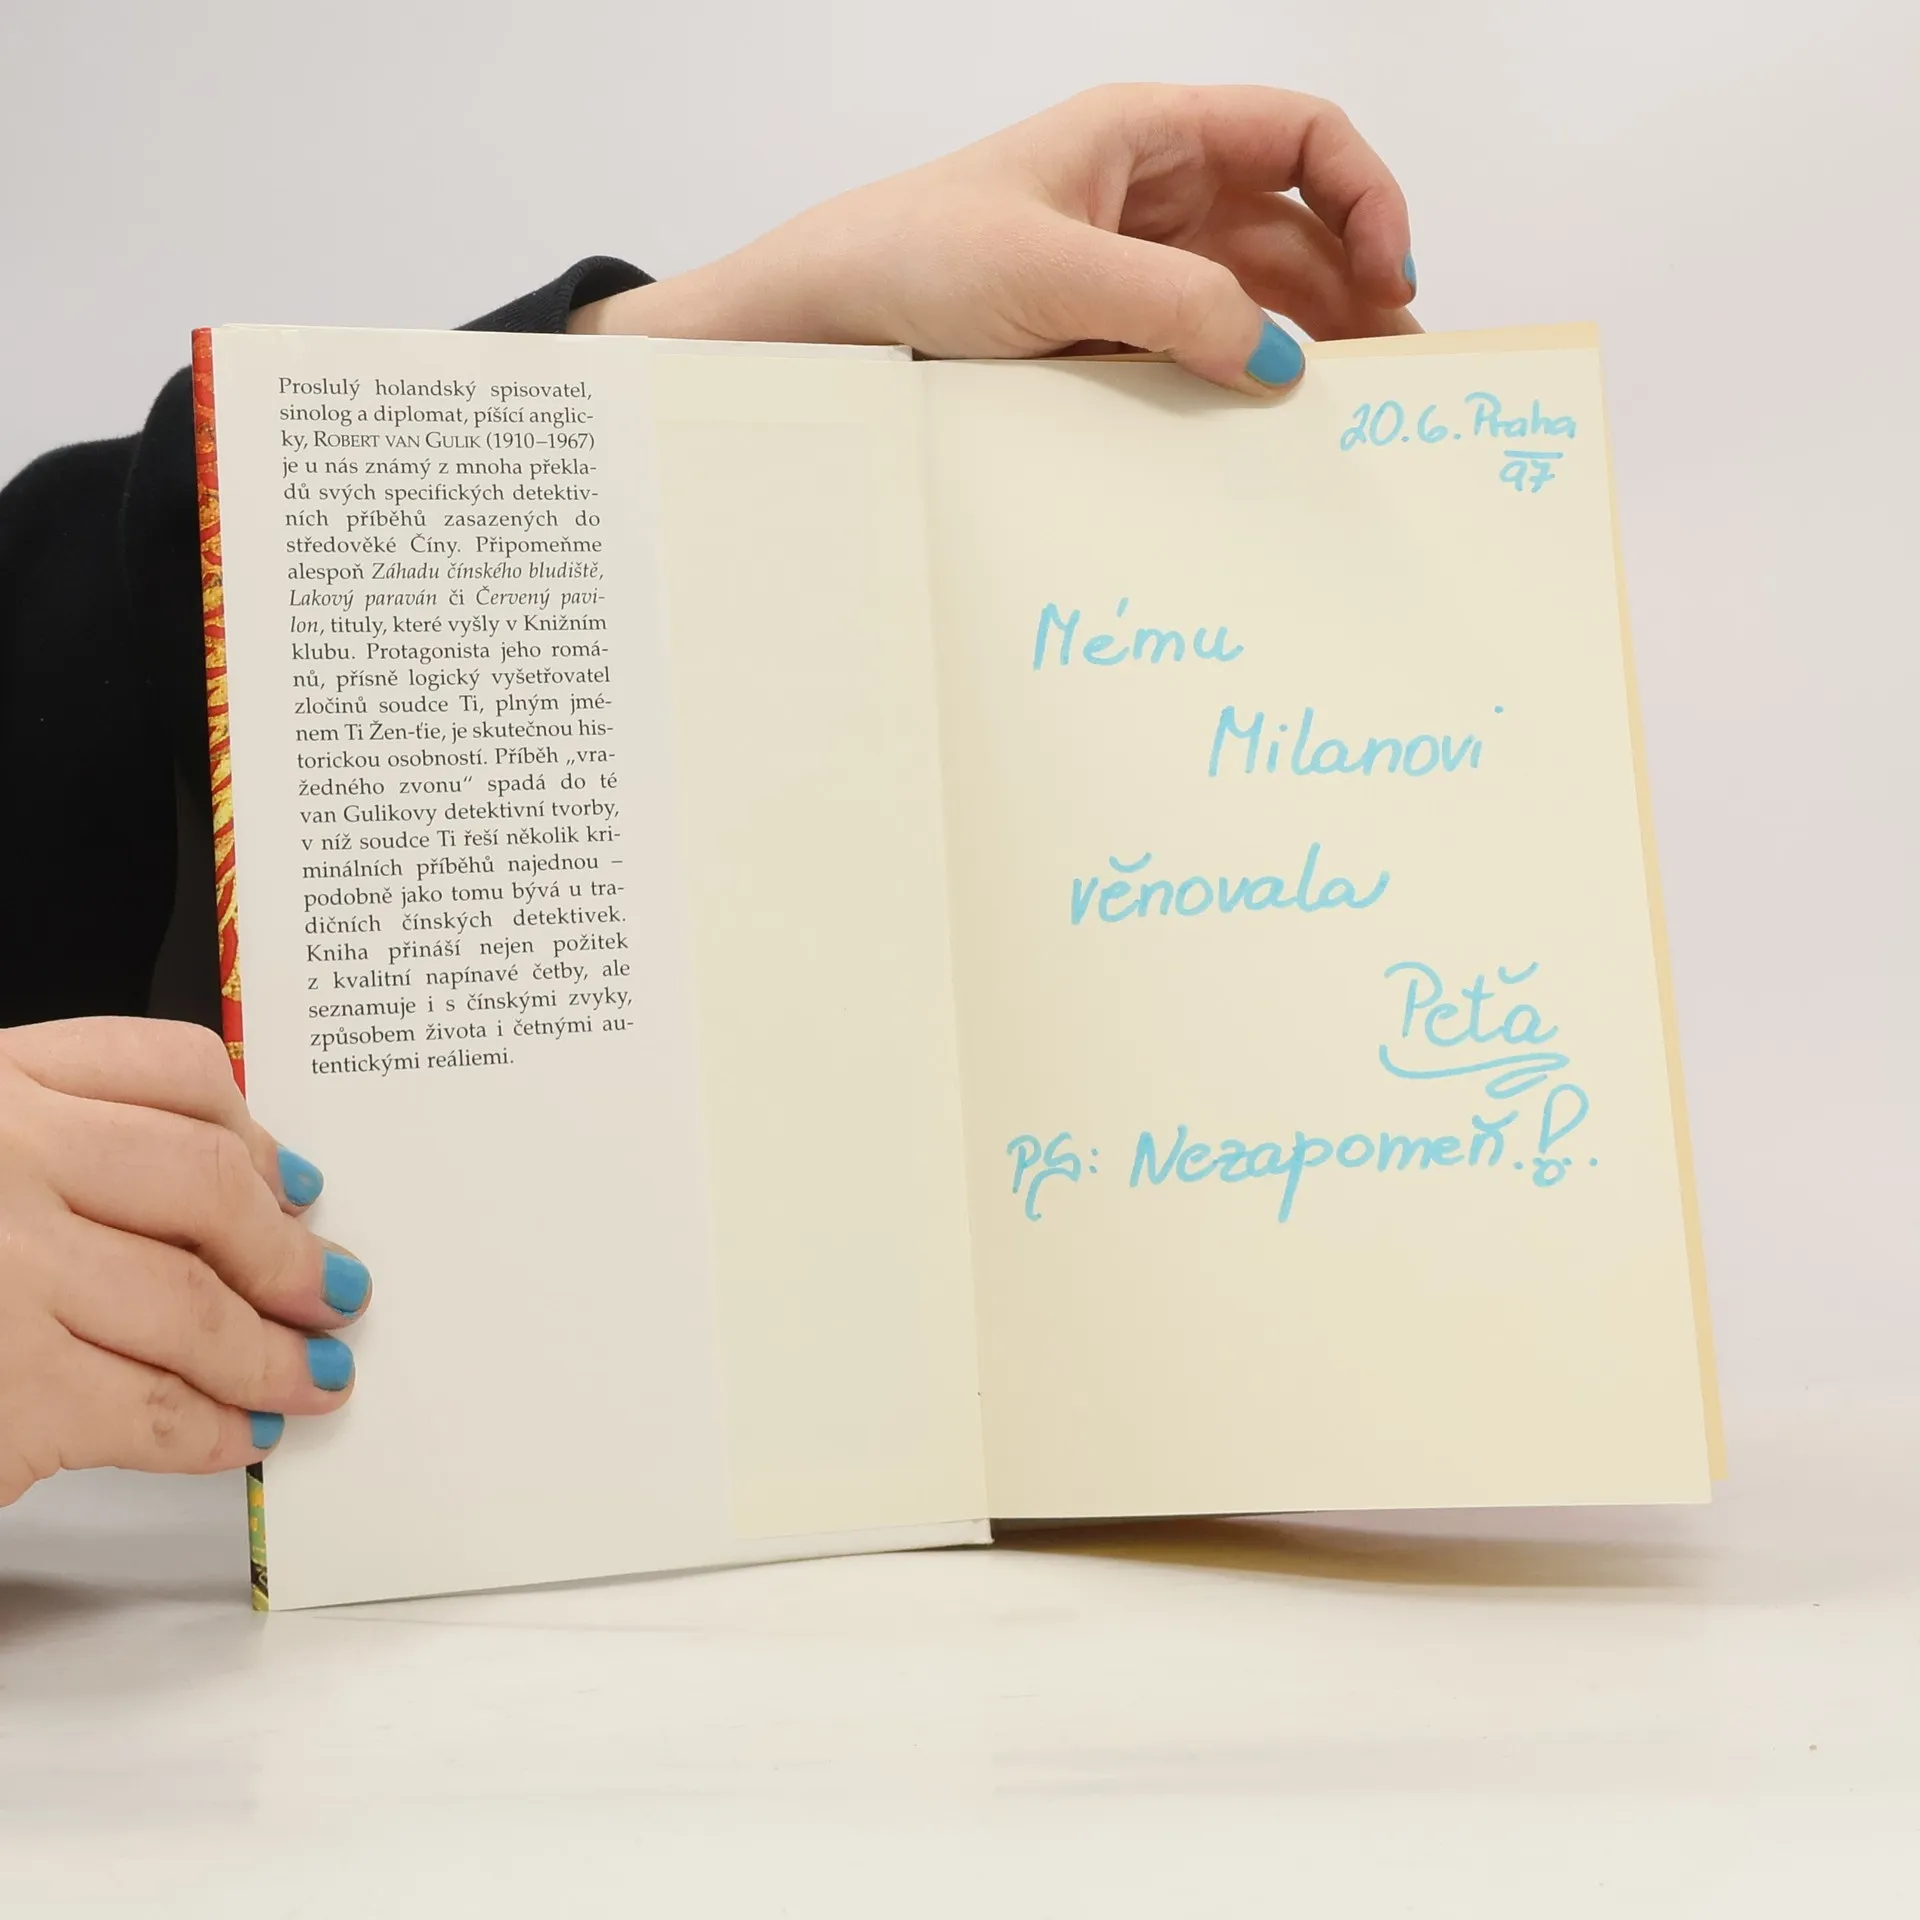 Proslulý holandský spisovatel,
sinolog a diplomat, píšící anglic-
ky, ROBERT VAN GULIK (1910–1967)
je u nás známý z mnoha překla-
dů svých specifických detektiv-
ních příběhů zasazených do
středověké Číny. Připomeňme
alespoň Záhadu čínského bludiště,
Lakový paraván či Červený pavi-
lon, tituly, které vyšly v Knižním
klubu. Protagonista jeho romá-
nů, přísně logický vyšetřovatel
zločinů soudce Ti, plným jmé-
nem Ti Žen-ťie, je skutečnou his-
torickou osobností. Příběh „vra-
žedného zvonu“ spadá do té
van Gulikovy detektivní tvorby,
v níž soudce Ti řeší několik kri-
minálních příběhů najednou –
podobně jako tomu bývá u tra-
dičních čínských detektivek.
Kniha přináší nejen požitek
z kvalitní napínavé četby, ale
seznamuje i s čínskými zvyky,
způsobem života i četnými au-
tentickými reáliemi.
20.6. Praha
97
Mému
Milanovi
věnovala
Peťa
PS: Nezapomeň.!..